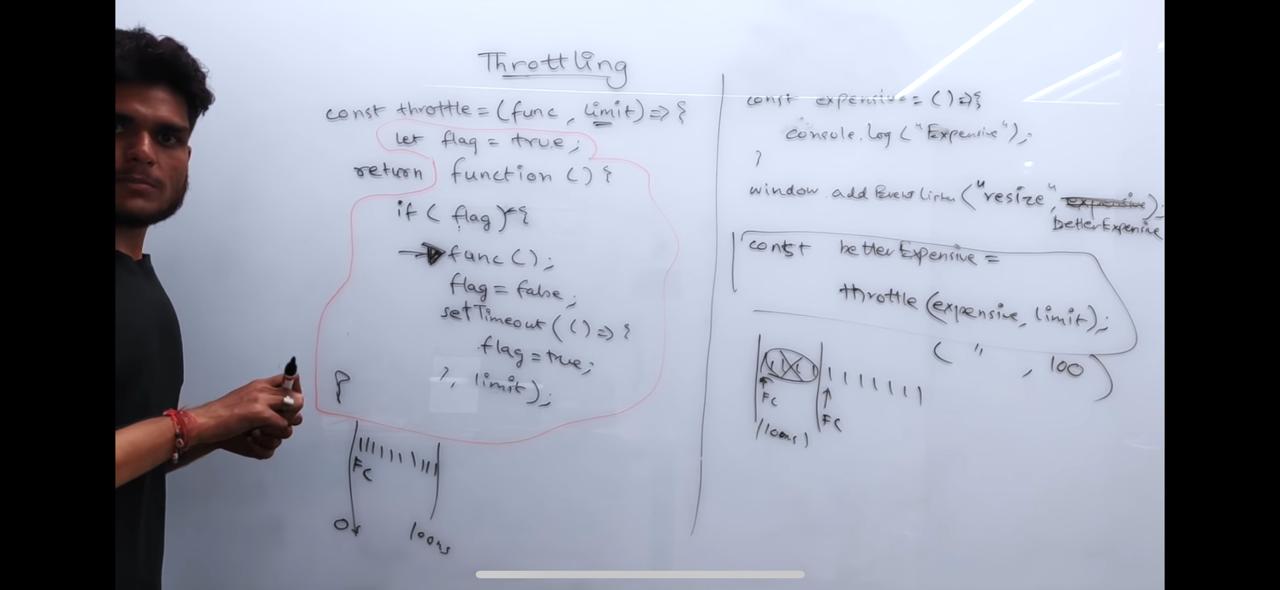 Throttling
const throttle = (func, limit) => {
let flag = true;
return function () {
if ( flag) {
func ();
flag = false;
setTimeout ( () => {
flag = true;
}, limit);
}
Fc
0s
100ms
const expensive = () => {
console.log ("Expensive");
}
window add Event ("resize", expensive);
betterExpensive
const betterExpensive =
throttle (expensive, limit);
( " , 100 )
Fc
Fc
(100ms)